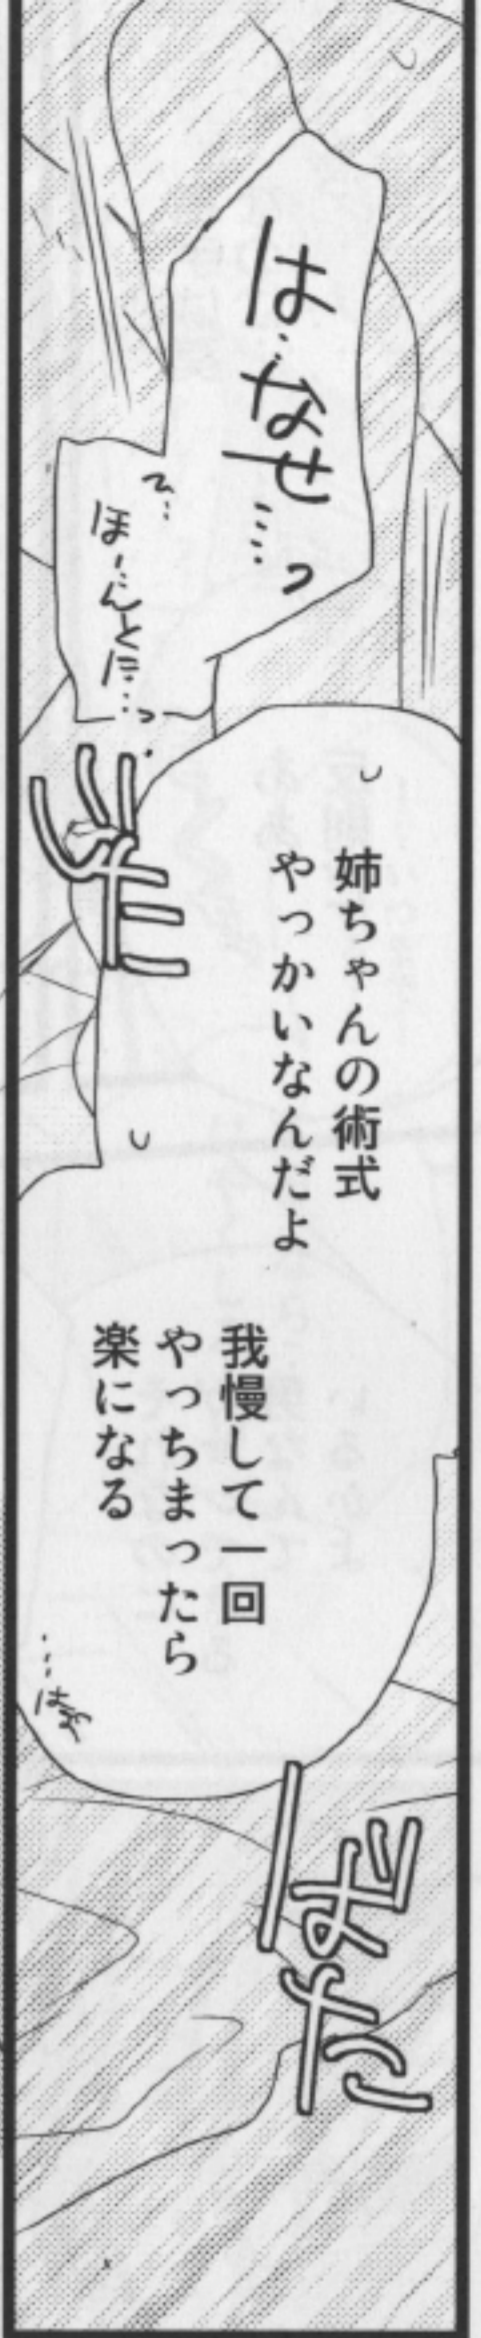 は…なせ…っ
て…
ほ…んとに…っ
姉ちゃんの術式
やっかいなんだよ
我慢して一回
やっちまったら
楽になる
…はぁ
じた
ばた